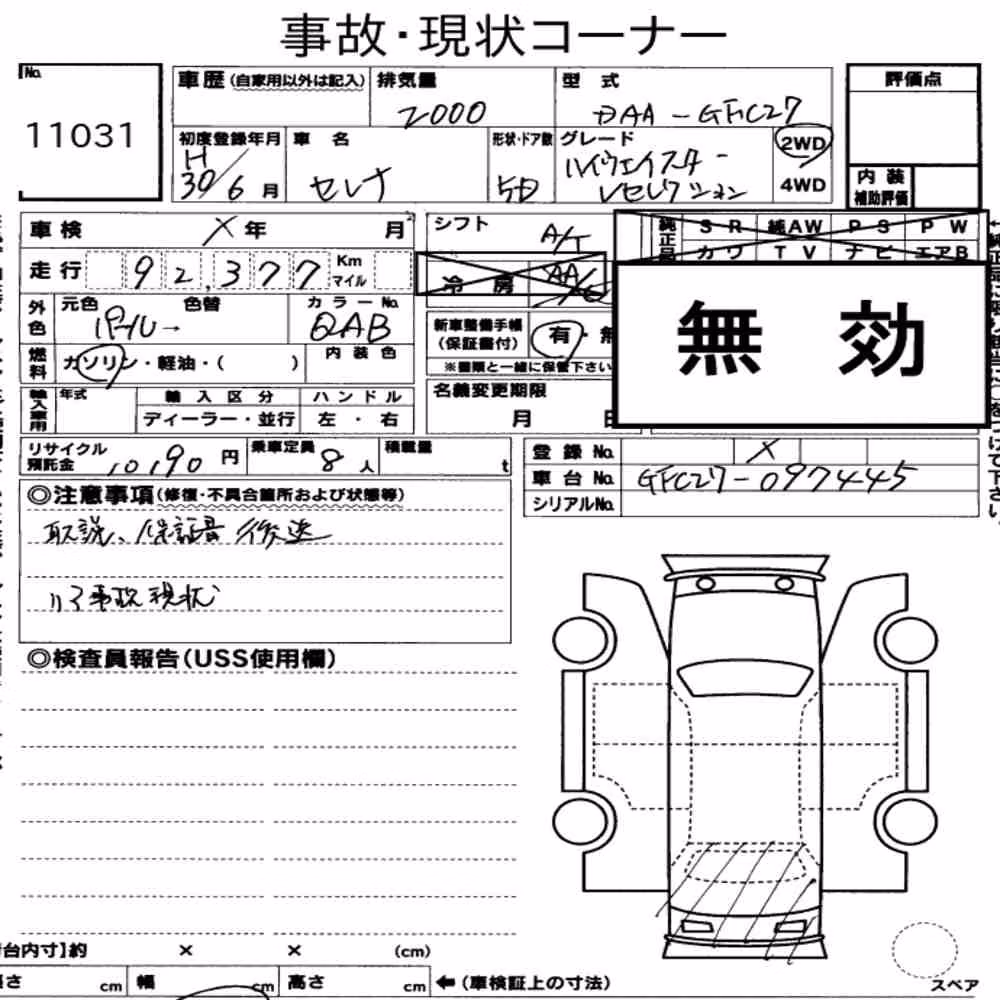 事故・現状コーナー
No. 11031
車歴(自家用以外は記入)
排気量 2000
型式 DAA-GFC27
評価点
初度登録年月 H30/6月
車名 セレナ
形状・ドア数 5D
グレード ハイウェイスター Vセレクション
2WD
4WD
内装
補助評価
車検 X年 月
シフト A/T
純正品 SR 純AW PS PW
カワ TV ナビ エアB
走行 92,377 Km マイル
冷房 AA/C
無効
外色 元色 色替 カラーNo.
パール→ QAB
新車整備手帳 有・無
(保証書付)
※書類と一緒に保管下さい
燃料 ガソリン・軽油・( )
内装色
輸入車用 年式 輸入区分 ハンドル
ディーラー・並行 左・右
名義変更期限
月 日
リサイクル
預託金 10190円
乗車定員 8人
積載量 t
登録No. X
車台No. GFC27-097445
シリアルNo.
◎注意事項(修復・不具合箇所および状態等)
取説、保証書 後送
事故現状
◎検査員報告(USS使用欄)
台内寸】約 × × (cm)
さ cm 幅 cm 高さ cm ←(車検証上の寸法)
スペア